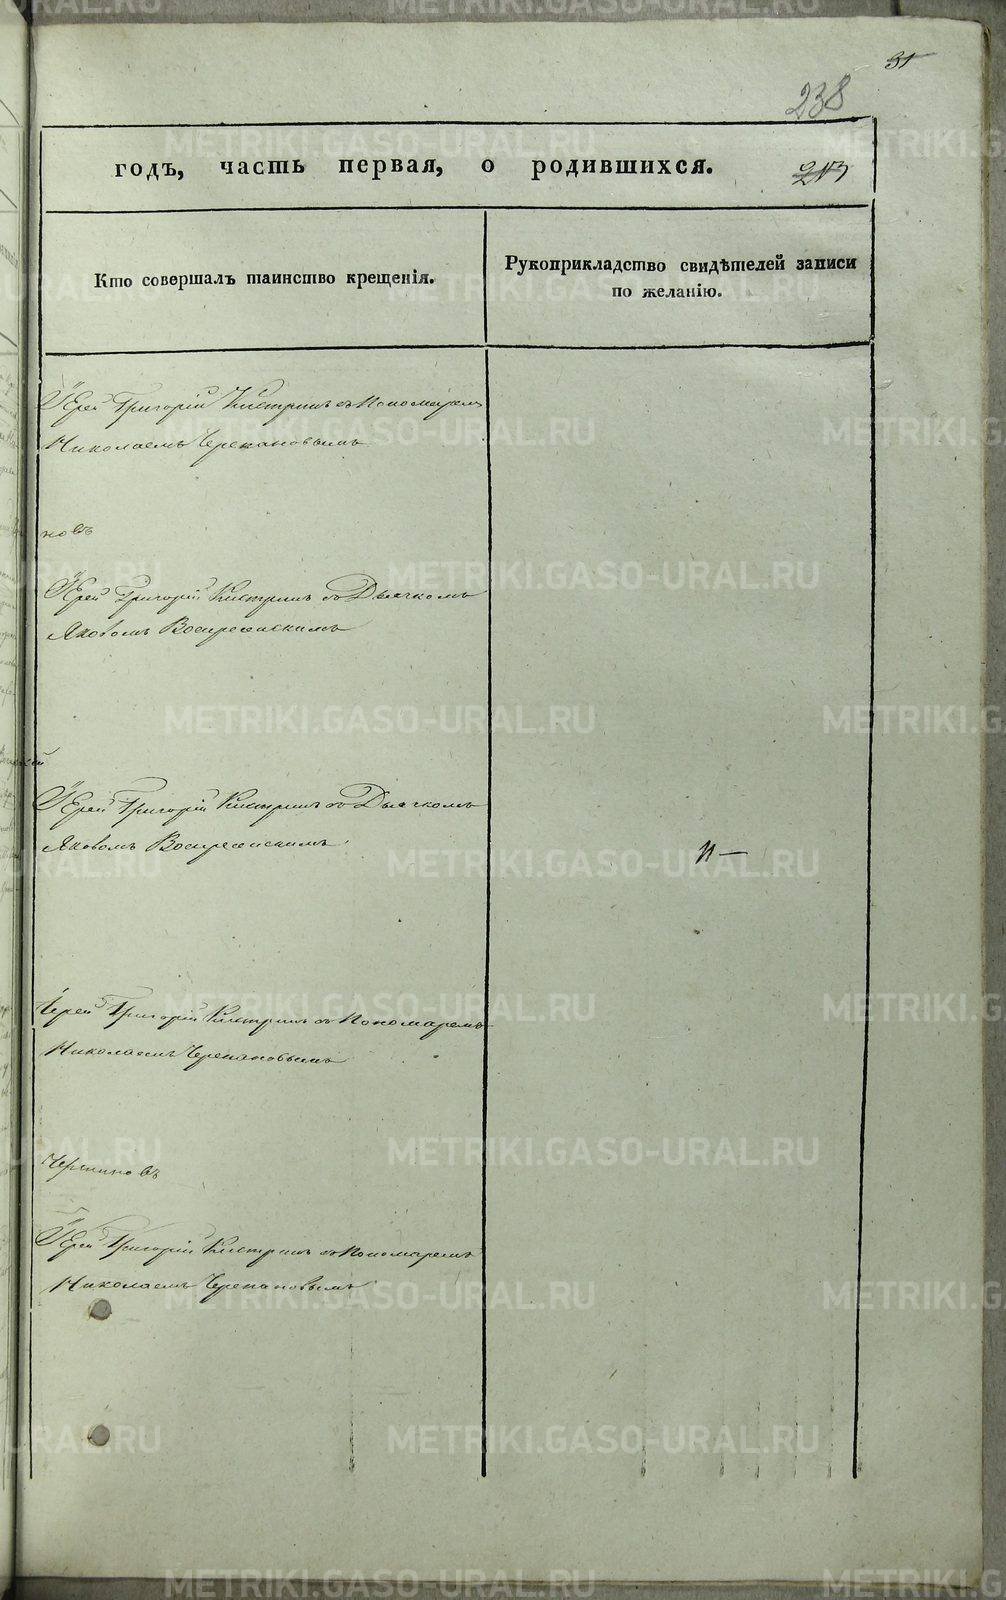 31
238
годъ, часть первая, о родившихся.
213
Кто совершалъ таинство крещенія.
Рукоприкладство свидѣтелей записи
по желанію.
Іерей Григорій Кистринъ съ Пономаремъ
Николаемъ Черепановымъ
новъ
Іерей Григорій Кистринъ съ Дьячкомъ
Яковомъ Воскресенскимъ
кій
Іерей Григорій Кистринъ съ Дьячкомъ
Яковомъ Воскресенскимъ
Іерей Григорій Кистринъ съ Пономаремъ
Николаемъ Черепановымъ
Іерей Григорій Кистринъ съ Пономаремъ
Николаемъ Черепановымъ
METRIKI.GASO-URAL.RU